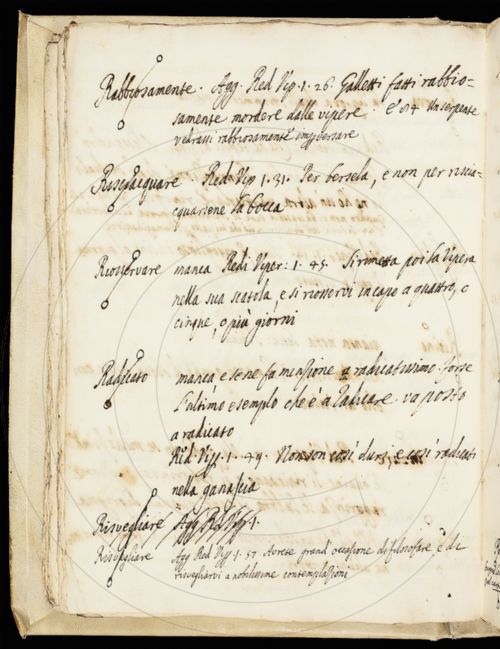 Rabbiosamente. Agg. Red Vip. 1. 26. Galletti fatti rabbio=
samente mordere dalle vipere. E 84 un serpente
vedrassi rabbiosamente imperversare
Risciacquare. Red. Vip 1. 31. Per bersela, e non per riscia=
cquarsene la bocca
Riosservare manca Redi Viper: 1. 45. Si rimetta poi la Vipera
nella sua scatola, e si riosservi in capo a quattro, o
cinque, o più giorni
Radicato manca e se ne fa menzione a radicatissimo. forse
L'ultimo esemplo che è a Radicare va posto
a radicato
Red. Vip. 1. 49. Non son così duri, e così radicati
nella ganascia
Risvegliare Agg Red Vip. 1.
Risvegliare Agg Red Vip. 1. 57 Avrete grand' occasione di filosofare e di
risvegliarvi a nobilissime contemplazioni